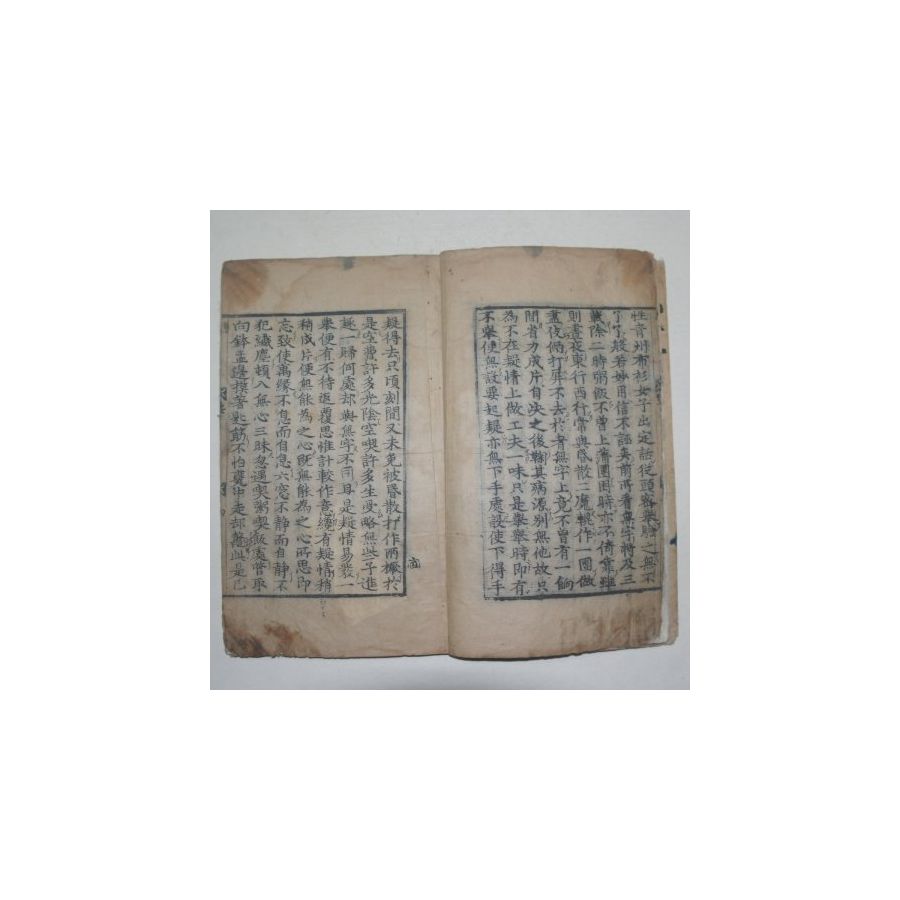 性青州布衫女子出定話從頭密擧驗之無不
了了般若妙用信不誣矣前所看無字將及三
載除二時粥飯不曾上蒲團困時亦不倚靠雖
則晝夜東行西行常與昏散二魔輥作一團做
盡伎倆打屛不去於者無字上竟不曾有一餉
間省力成片自决之後鞠其病源別無他故只
為不在疑情上做工夫一味只是擧擧時即有
不擧便無設要起疑亦無下手處設使下得手
疑得去只頃刻間又未免被昏散打作兩橛於
是空費許多光陰空喫許多生受略無些子進
趣一歸何處却與無字不同且是疑情易發一
擧便有不待返覆思惟計較作意纔有疑情稍
稍成片便無能為之心旣無能為之心所思即
忘致使萬緣不息而自息六窓不靜而自靜不
犯纖塵頓入無心三昧忽遇喫粥喫飯處管取
向鉢盂邊摸著匙筯不怕甕中走却鼈此是已